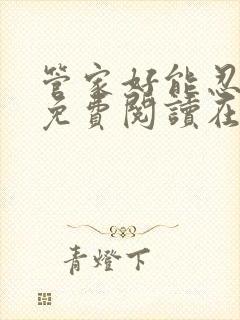 管家好能忍
免費閱讀在
青燈下